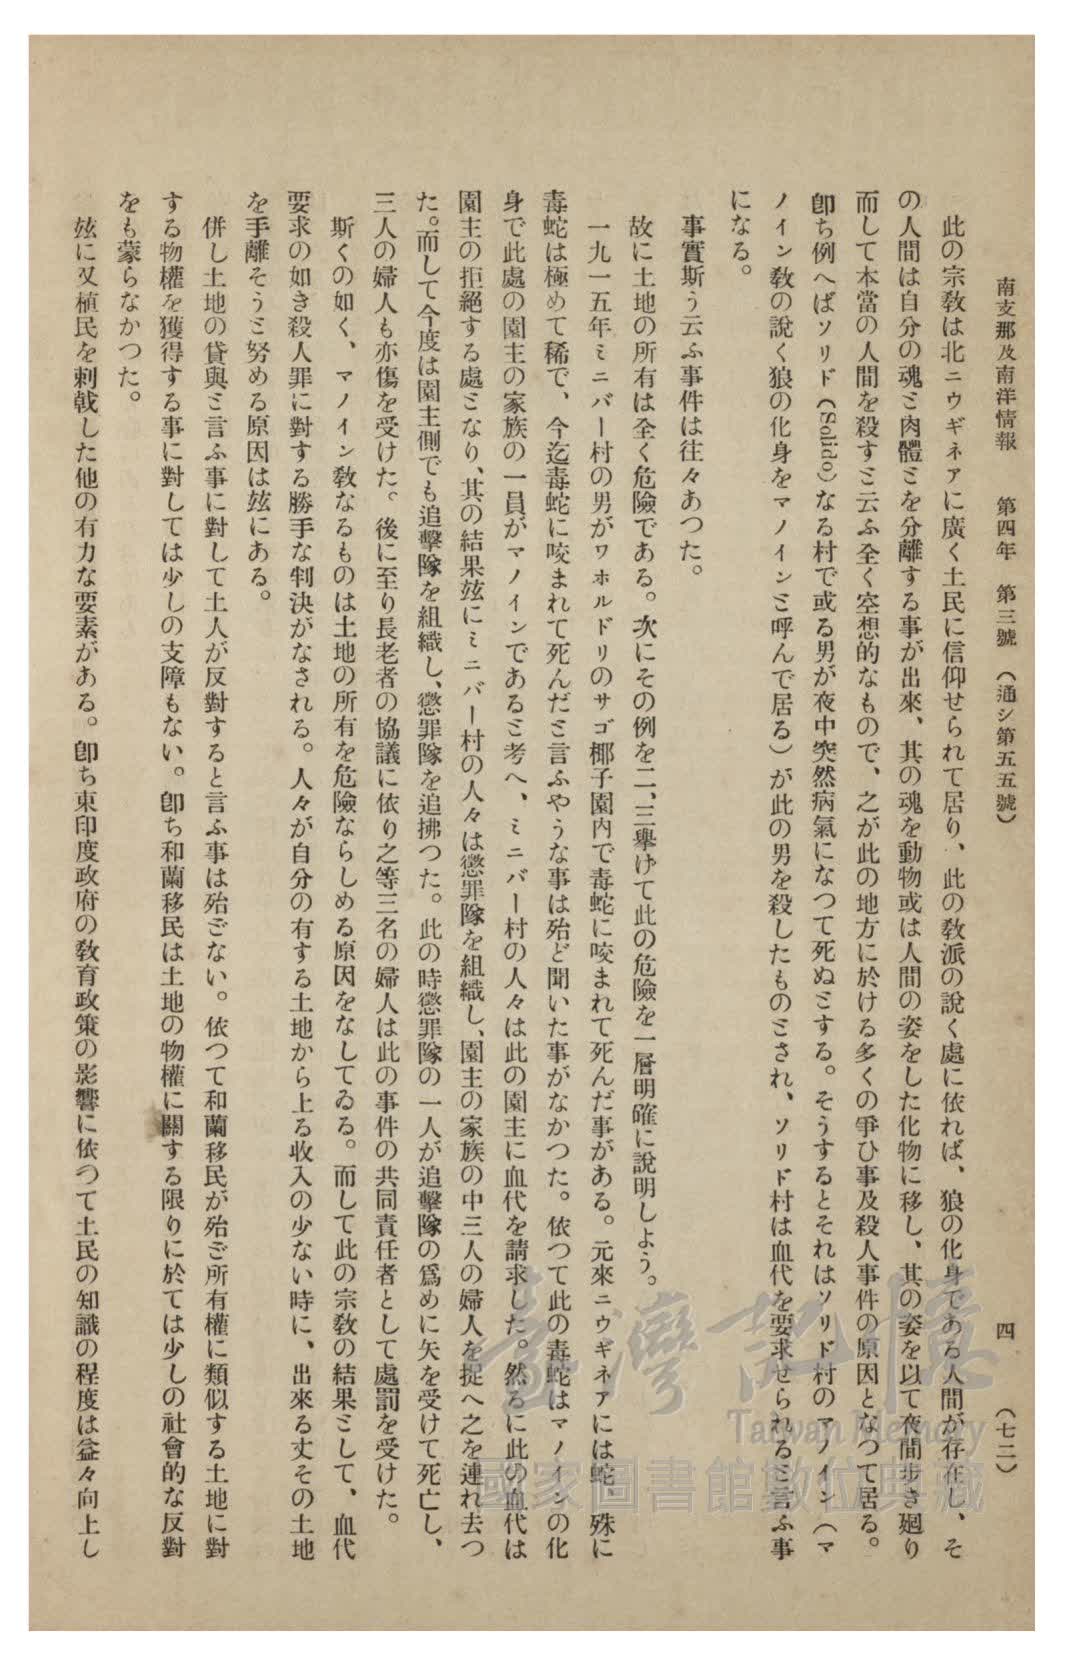 南支那及南洋情報　第四年　第三號　（通シ第五五號）　四　（七二）
此の宗敎は北ニウギネアに廣く土民に信仰せられて居り、此の敎派の說く處に依れば、狼の化身である人間が存在し、そ
の人間は自分の魂ミ肉體ミを分離する事が出來、其の魂を動物或は人間の姿をした化物に移し、其の姿を以て夜間步き廻り
而して本當の人間を殺すミ云ふ全く空想的なもので、之が此の地方に於ける多くの爭ひ事及殺人事件の原因となつて居る。
卽ち例へばソリド（Solido）なる村で或る男が夜中突然病氣になつて死ぬミする。そうするとそれはソリド村のマノイン（マ
ノイン敎の說く狼の化身をマノインミ呼んで居る）が此の男を殺したものミされ、ソリド村は血代を要求せられるミ言ふ事
になる。
事實斯う云ふ事件は往々あつた。
故に土地の所有は全く危險である。次にその例を二、三擧げて此の危險を一層明確に說明しよう。
一九一五年ミニバー村の男がワホルドリのサゴ椰子園內で毒蛇に咬まれて死んだ事がある。元來ニウギネアには蛇、殊に
毒蛇は極めて稀で、今迄毒蛇に咬まれて死んだミ言ふやうな事は殆ど聞いた事がなかつた。依つて此の毒蛇はマノインの化
身で此處の園主の家族の一員がマノインであるミ考へ、ミニバー村の人々は此の園主に血代を請求した。然るに此の血代は
園主の拒絕する處ミなり、其の結果玆にミニバー村の人々は懲罪隊を組織し、園主の家族の中三人の婦人を捉へ之を連れ去つ
た。而して今度は園主側でも追擊隊を組織し、懲罪隊を追拂つた。此の時懲罪隊の一人が追擊隊の爲めに矢を受けて死亡し、
三人の婦人も亦傷を受けた。後に至り長老者の協議に依り之等三名の婦人は此の事件の共同責任者として處罰を受けた。
斯くの如く、マノイン敎なるものは土地の所有を危險ならしめる原因をなしてゐる。而して此の宗敎の結果ミして、血代
要求の如き殺人罪に對する勝手な判決がなされる。人々が自分の有する土地から上る收入の少ない時に、出來る丈その土地
を手離そうミ努める原因は玆にある。
併し土地の貸與ミ言ふ事に對して土人が反對すると言ふ事は殆ごない。依つて和蘭移民が殆ご所有權に類似する土地に對
する物權を獲得する事に對しては少しの支障もない。卽ち和蘭移民は土地の物權に關する限りに於ては少しの社會的な反對
をも蒙らなかつた。
玆に又植民を刺戟した他の有力な要素がある。卽ち東印度政府の敎育政策の影響に依つて土民の知識の程度は益々向上し
臺灣記憶
Taiwan Memory
國家圖書館數位典藏